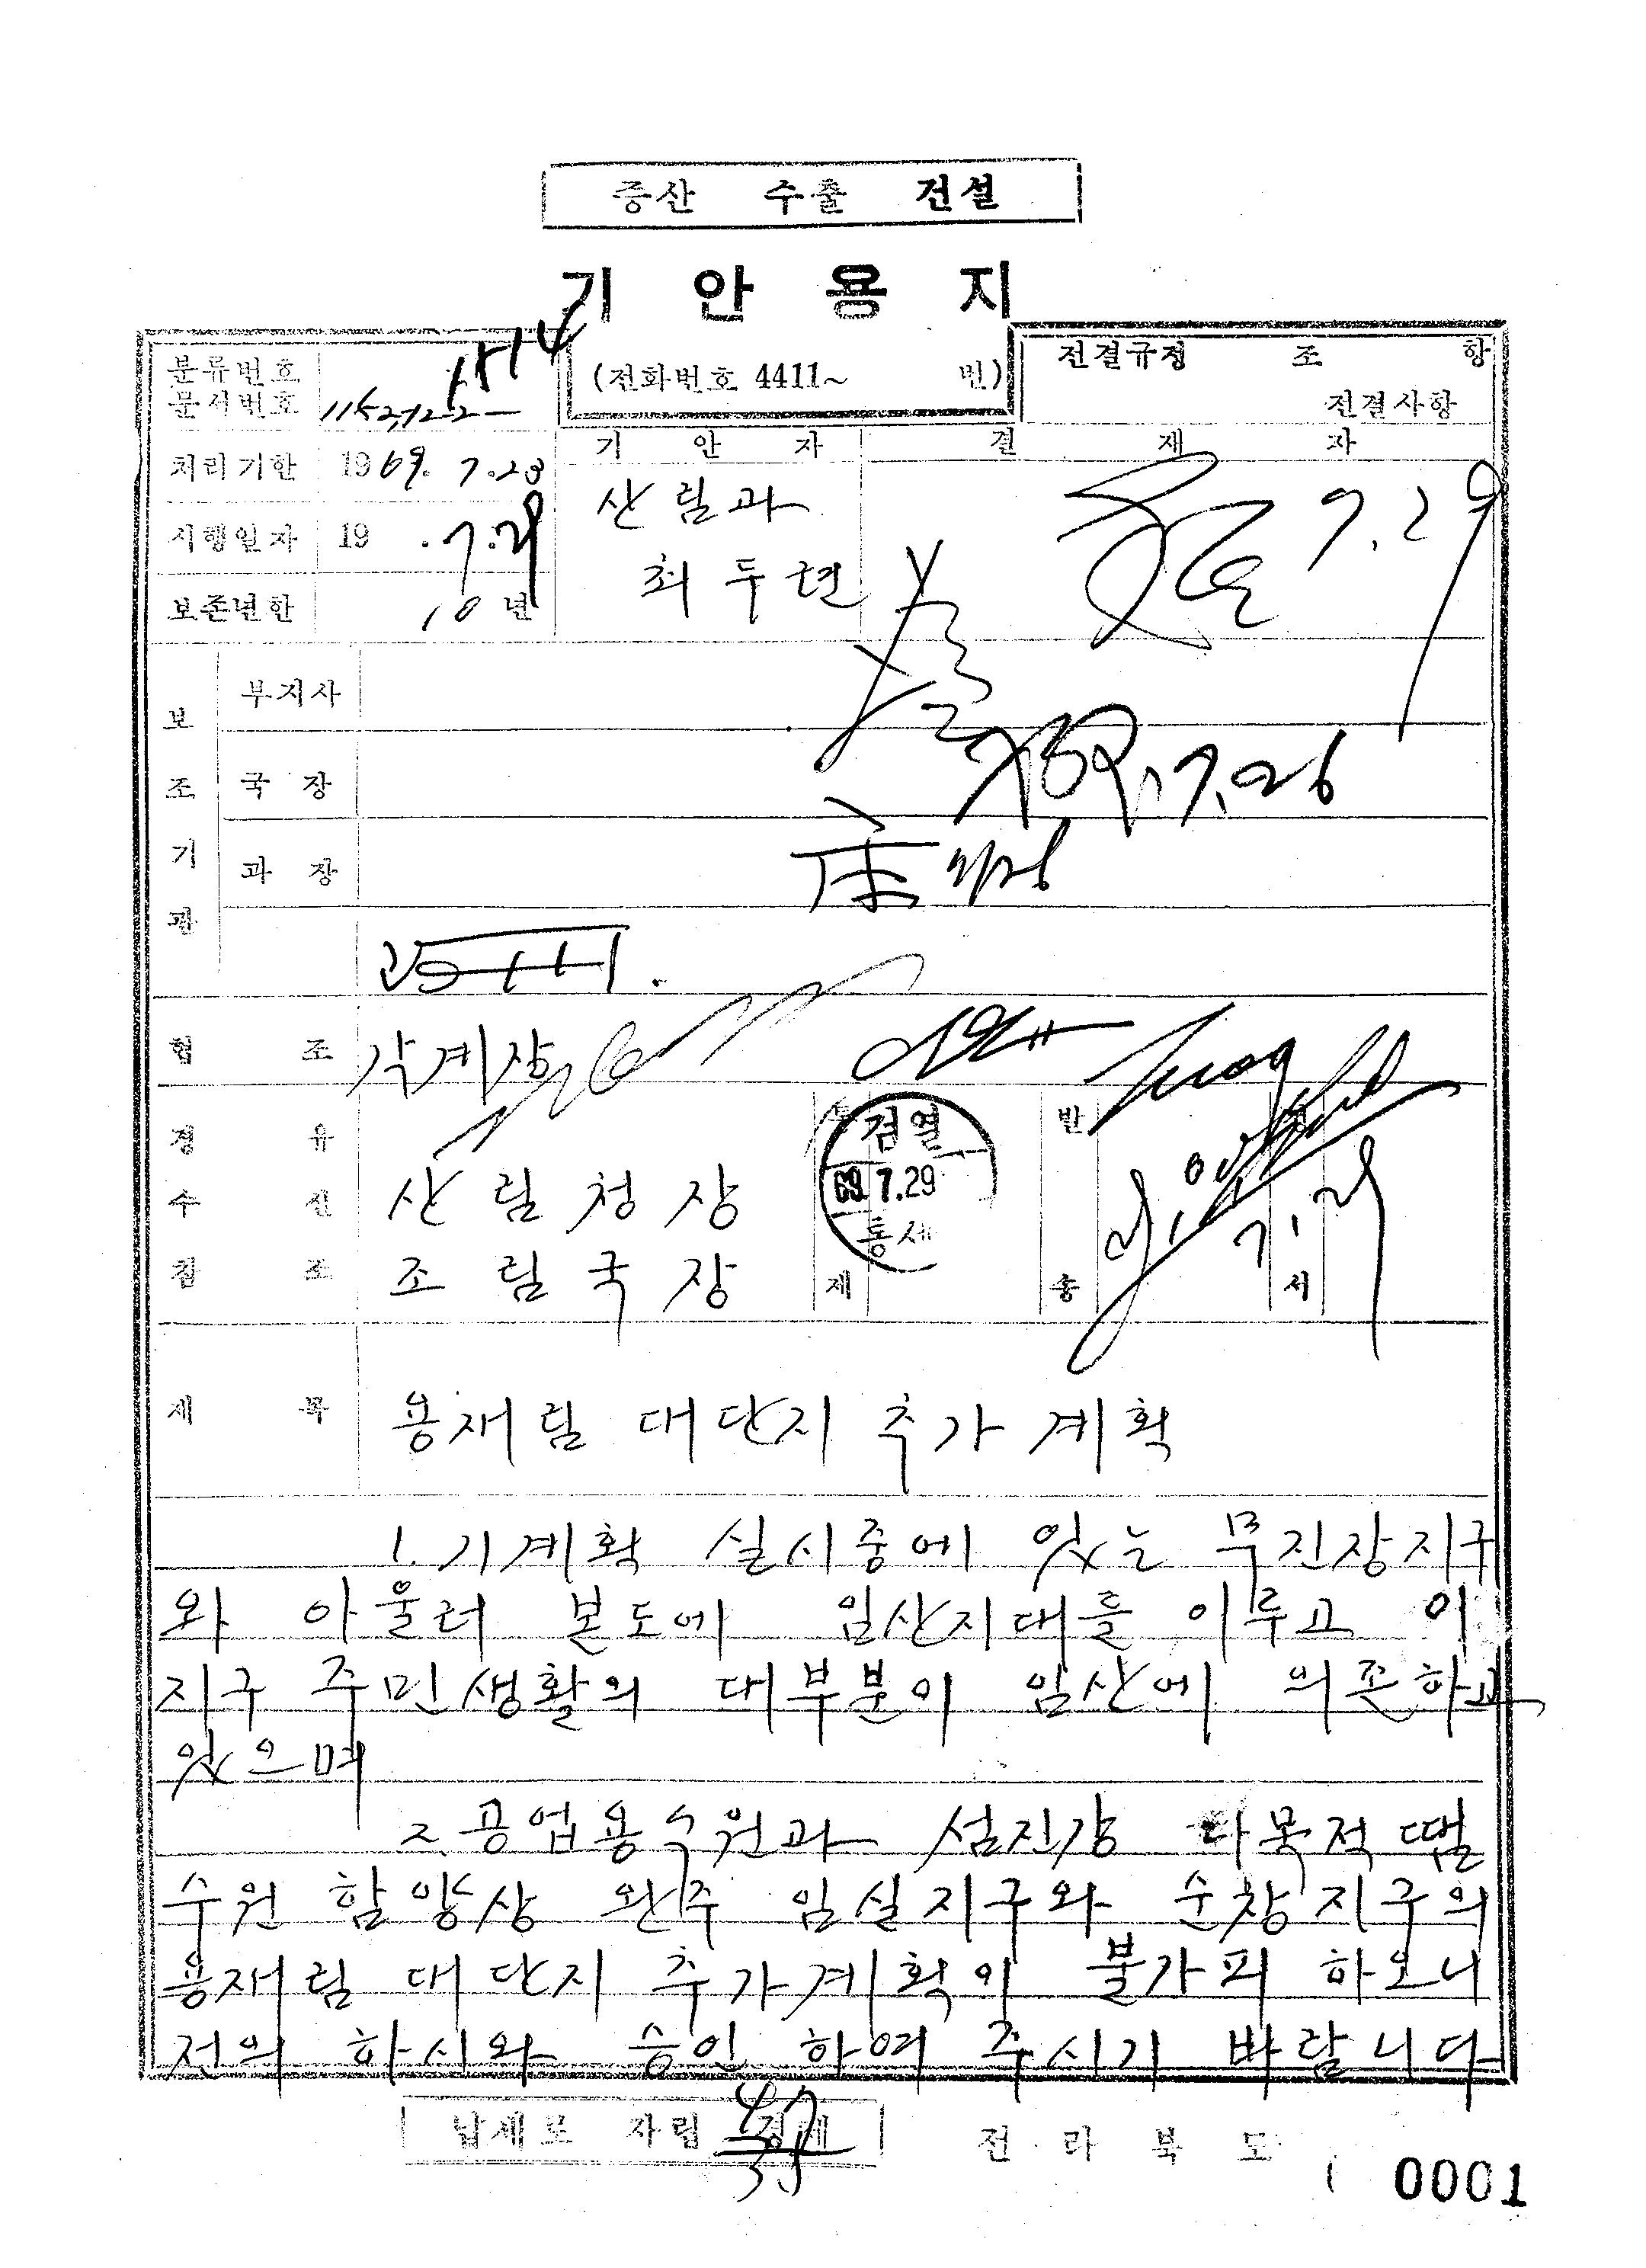 증산 수출 건설
기 안 용 지
분류번호
문서번호
(전화번호 4411~ 번)
전결규정 조 항
전결사항
처리기한 1969. 7.28
기 안 자
결 재 자
산림과
7.29
시행일자 19 . 7.29
최두
보존년한 10 년
보조기관
부지사
국 장
7.26
과 장
협 조 각계장
경 유
수 신 산림청장
참 조 조림국장
검열
69.7.29
통제
반 송
7.29
서
제 목 용재림 대단지 추가계획
1. 기계획 실시중에 있는 무진장지구
와 아울러 본도에 임산지대를 이루고 이
지구 주민생활의 대부분이 임산에 의존하고
있으며
2. 공업용수원과 섬진강 다목적 땜
수원 함양상 완주 임실지구와 순창지구의
용재림 대단지 추가계획이 불가피 하오니
전의 하시와 승인 하여 주시기 바랍니다
납세로 자립 경제
전 라 북 도
0001